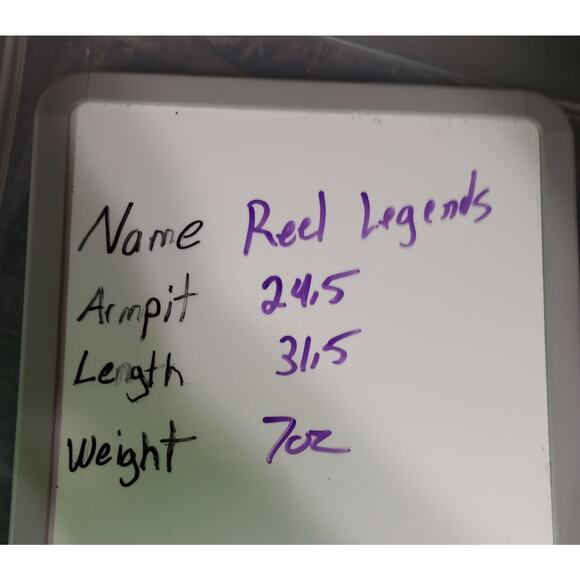 Name Reel Legends
Armpit 24.5
Length 31.5
Weight 7oz